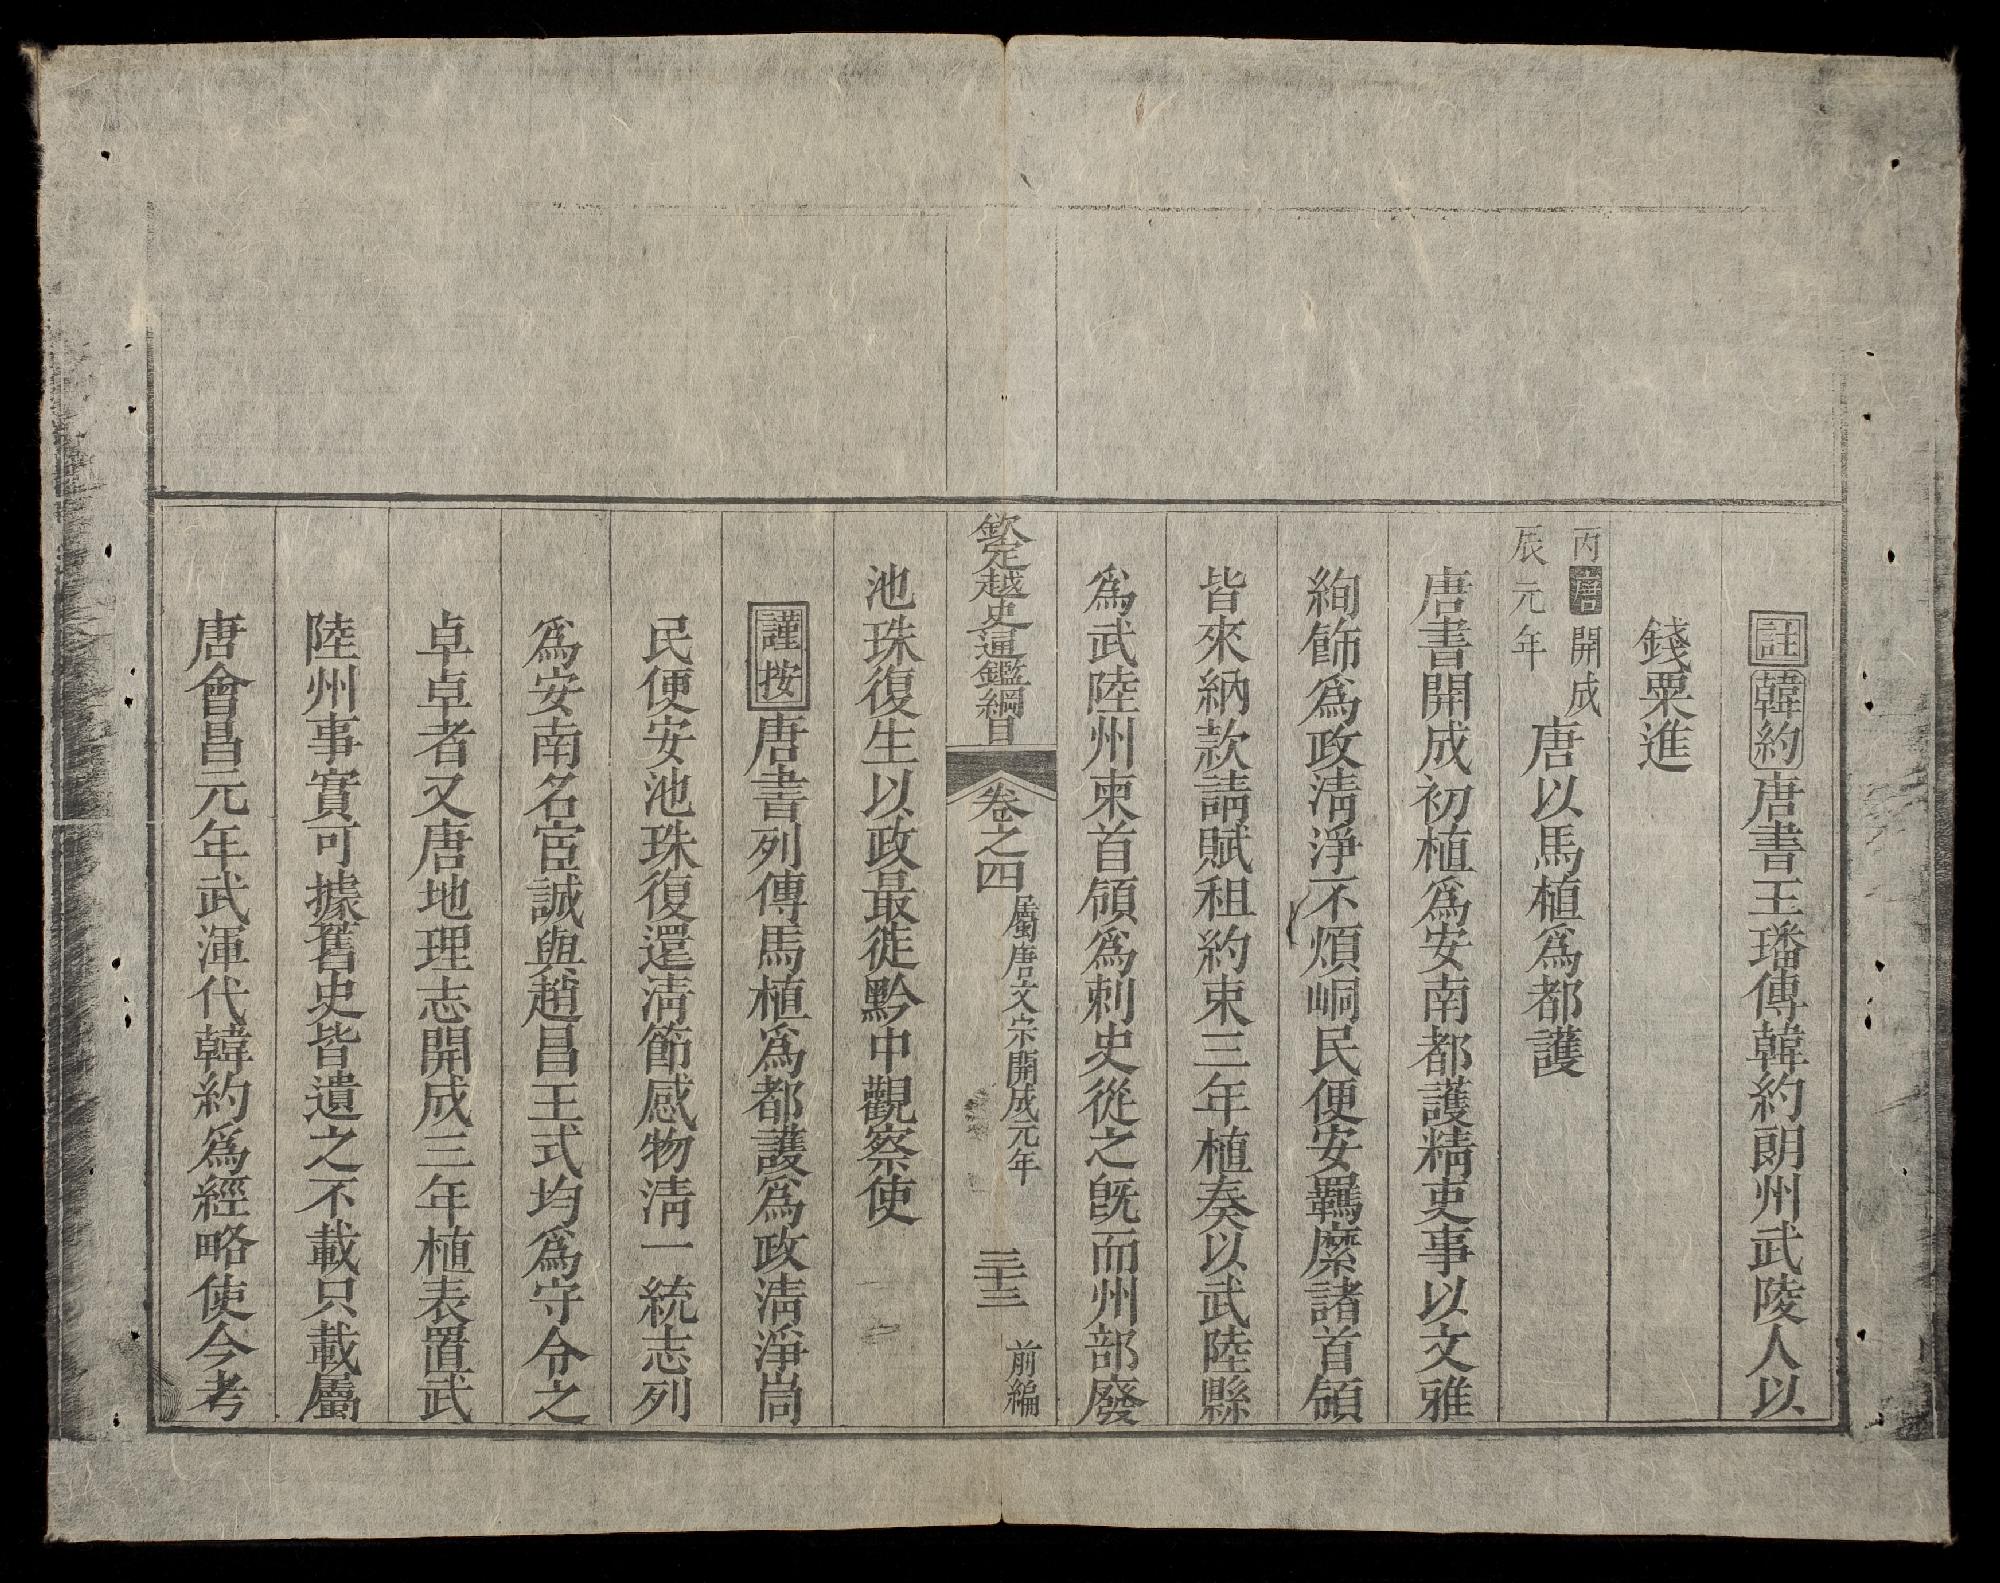 註韓約唐書王璠傳韓約朗州武陵人以
錢粟進
丙唐開成
辰元年
唐以馬植爲都護
唐書開成初植爲安南都護精吏事以文雅
絢飾爲政淸淨不煩峒民便安羈縻諸首領
皆來納款請賦租約束三年植奏以武陸縣
爲武陸州柬首領爲刺史從之旣而州部廢
欽定越史通鑑綱目
卷之四
屬唐文宗開成元年
三十三
前編
池珠復生以政最徙黔中觀察使
謹按唐書列傳馬植爲都護爲政淸淨尙
民便安池珠復還淸節感物淸一統志列
爲安南名宦誠與趙昌王式均爲守令之
卓卓者又唐地理志開成三年植表置武
陸州事實可據舊史皆遺之不載只載屬
唐會昌元年武渾代韓約爲經略使今考